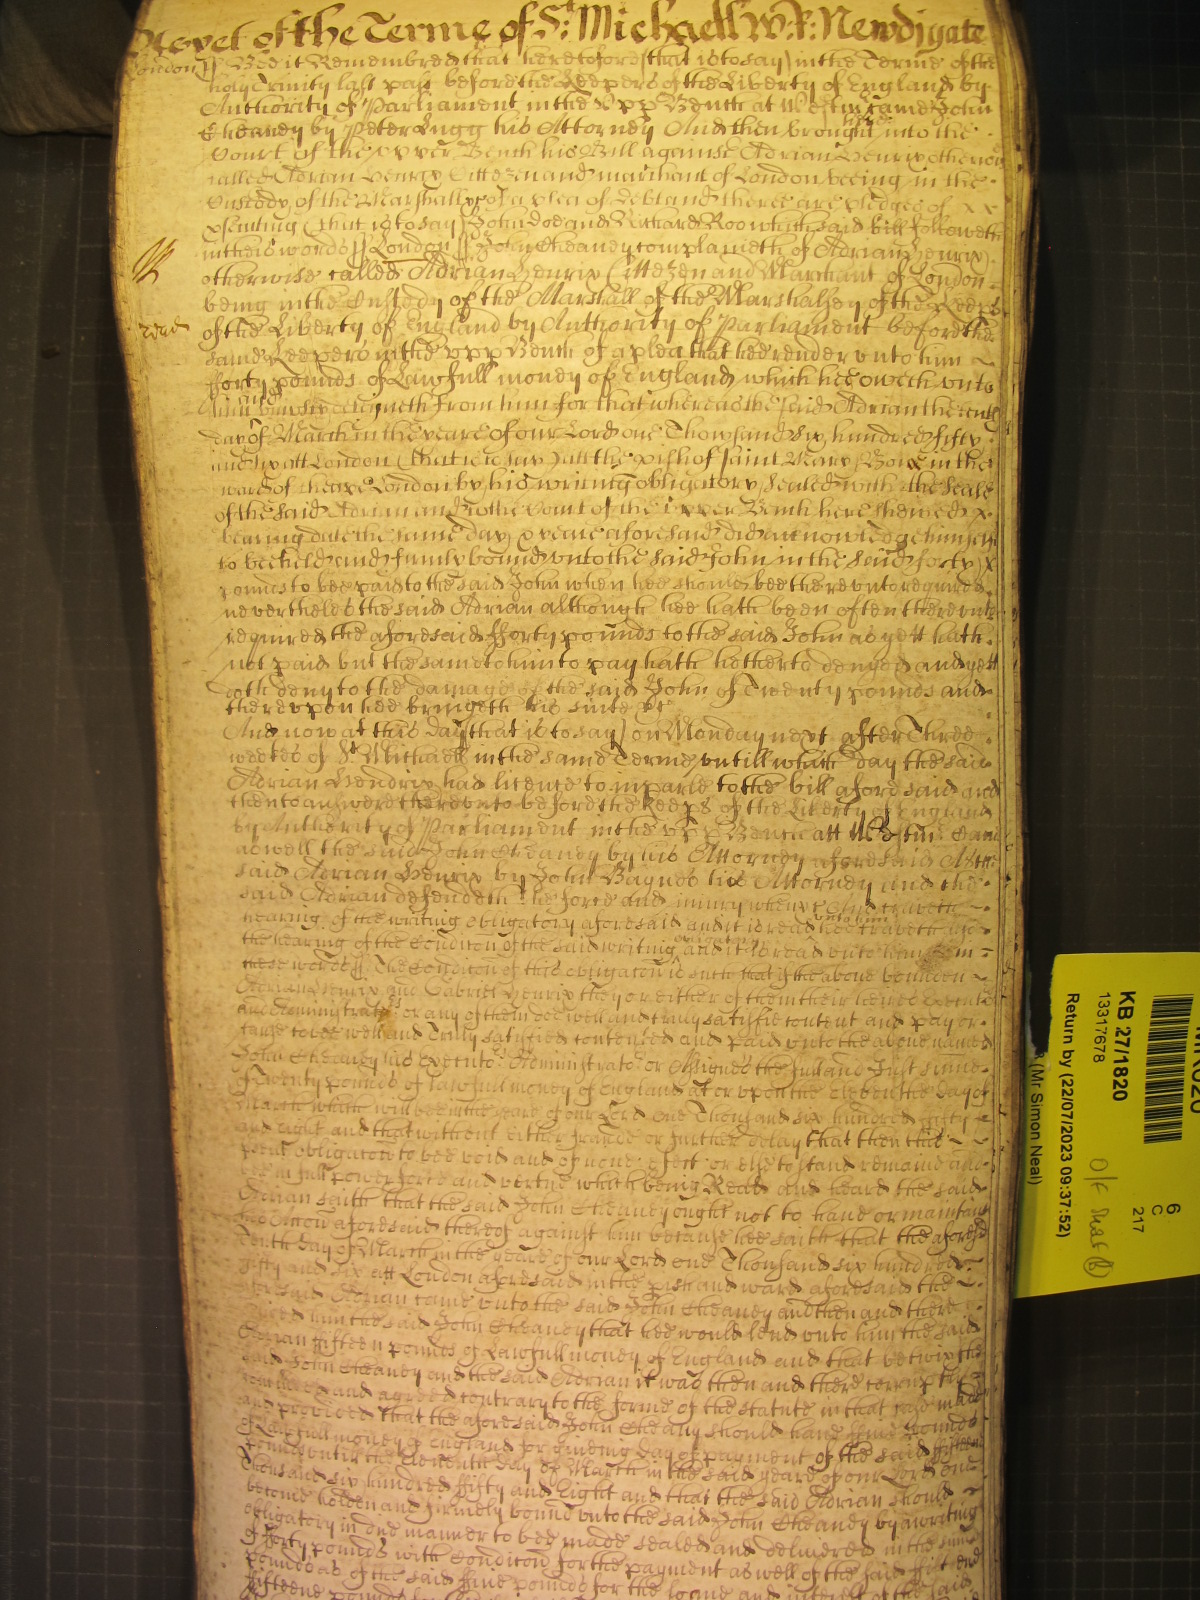 Novel of the Terme of St. Michaell W. ff. Newdigate
London ss Bee it Remembred that heretofore (that is to say) in the Terme of the
holy Trinity last past before the Keepers of the Liberty of England by
Authority of Parliament in the Vpp Bench at Westm came John
Cheaney by Peter Lugg his Attorney And then brought into the
Court of the vpper Bench his Bill against Adrian Henrix otherwise
called Adrian Henrix Cittezen and marchant of London beeing in the
Custody of the Marshall &c of a plea of debt and there are pledges of
psenting (that is to say) John Doe and Richard Roo which said bill followeth
in theis words ss London ss John Cheaney complaineth of Adrian Henrix
otherwise called Adrian Henrix Cittezen and Marchant of London
being in the Custody of the Marshall of the Marshalsey of the Keeps
read
of the Liberty of England by Authority of Parliament before the
same Keepers in the vpp Bench of a plea that hee render vnto him
fforty pounds of Lawfull money of England which hee oweth vnto
him and vniustly deteyneth from him for that whereas the said Adrian the tenth
day of March in the yeare of our Lord one Thowsand six hundred fifty
and six att London (that is to say) att the pish of saint Mary Bowe in the
ward of Cheape London by his writing obligatory sealed with the seale
of the said Adrian and to the Court of the vpper Bench here shewed
bearing date the same day & yeare aforesaid did acknowledge himself
to bee held and firmly bound vnto the said John in the said forty
pounds to bee paid to the said John when hee should bee therevnto required
neverthelesse the said Adrian although hee hath been often therevnto
required the aforesaid fforty pounds to the said John as yett hath
not paid but the same to him to pay hath hitherto denyed and yett
doth deny to the damage of the said John of Twenty pounds and
therevpon hee bringeth his suite &c
And now at this day (that is to say) on Monday next after Three
weekes of St Michaell in the same Terme vntill which day the said
Adrian Hendrix had licence to imparle to the bill aforesaid and
then to answere therevnto before the Keeps of the Liberty of England
by Authority of Parliament in the vpp Bench att Westm Came
aswell the said John Cheaney by his Attorney aforesaid As the
said Adrian Henrix by John Baynes his Attorney and the
said Adrian defendeth the force and iniury when &c And craveth
hearing of the writing obligatory aforesaid and it is read vnto him hee craveth also
the hearing of the Condicon of the said writing obligatory and it is read vnto him in
these words ss The Condicon of this obligacon is such that if the above bounden
Adrian Henrix and Gabriel Henrix they or either of them their heires Executors
and Administrators or any of them doe well and truly satisfie content and pay or
cause to bee well and Truly satisfied contented and paid vnto the above named
John Cheaney his Executors Administrators or Assignes the full and Just summe
of Twenty pounds of lawfull money of England at or vpon the Eleventh day of
March which will bee in the yeare of our Lord One Thousand six hundred fifty
and eight and that without either fraude or further delay that then this
psent obligacon to bee void and of none efect or else to stand remaine and
bee in full power force and vertue which being Read and heard the said
Adrian saith that the said John Cheaney ought not to have or maintaine
his Accon aforesaid thereof against him because hee saith that the aforesd
Tenth day of March in the yeare of our Lord one Thousand six hundred
fifty and six att London aforesaid in the pish and ward aforesaid the
aforesaid Adrian came vnto the said John Cheaney and then and there
him the said John Cheaney that hee would lend vnto him the said
Adrian fifteen pounds of Lawfull money of England and that betwixt the
said John Cheaney and the said Adrian it was then and there corruptly
and agreed contrary to the forme of the statute in that case made
and provided that the aforesaid John Cheany should have five pounds
of Lawfull money of England for giveing day of payment of the said fifteen
pounds vntill the Eleventh day of March in the said yeare of our Lord one
Thousand six hundred fifty and Eight and that the said Adrian should
become holden and firmely bound vnto the said John Cheaney by a writing
obligatory in due manner to bee made sealed and delivered in the summe
of forty pounds with Condicon for the payment as well of the said
pounds as of the said five pounds for the loane and interest of the said
fifteene pounds
KB 27/1820
13317678
Return by (22/07/2023 09:37:52)
(Mr Simon Neal)
6
C
217